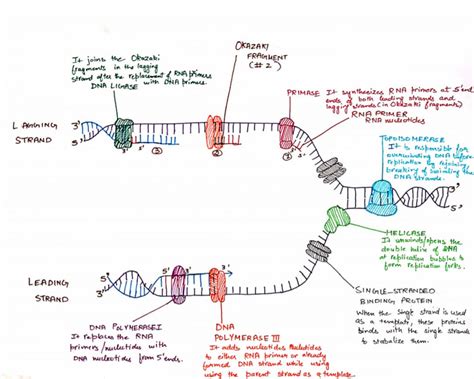 OKAZAKI
FRAGMENT
(#2)
It joins the Okazaki
fragments in the lagging
strand after the replacement of RNA primers
with DNA primers.
DNA LIGASE
PRIMASE It synthesizes RNA primers at 5' end
ends of both leading strands and
lagging strands (in Okazaki fragments)
RNA PRIMER
RNA nucleotides
LAGGING
STRAND
3'
5'
3'
5'
3
2
1
TOPOISOMERASE
It is responsible for
DNA before
replication by
breaking of
DNA strands.
3'
5'
HELICASE
It unwinds/opens the
double helix of DNA
at replication bubbles to
form replication forks.
LEADING
STRAND
5'
3'
5'
3'
SINGLE-STRANDED
BINDING PROTEIN
When the single strand is used
as a template, these proteins
binds with the single strands
to stabalize them.
DNA POLYMERASE I
It replaces the RNA
primers/nucleotides with
DNA nucleotides from 5' ends.
DNA
POLYMERASE III
It adds nucleotides
to either RNA primer or already
formed DNA strand while using
using the parent strand as a template